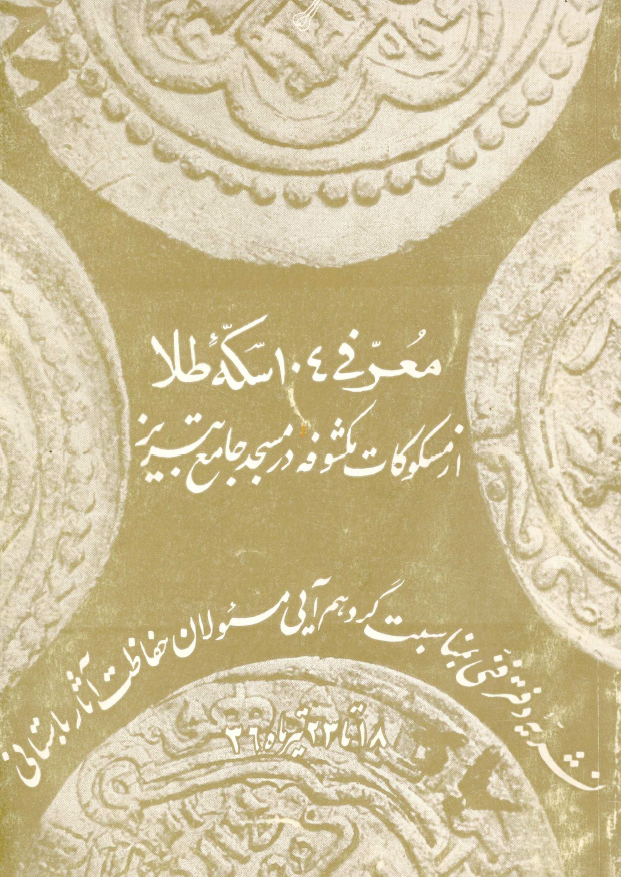 معرّفی ۱۰۴ سکّهٔ طلا
از مسکوکات مکشوفه در مسجد جامع تبریز
نشریه دفتر فنی بمناسبت گردهم آیی مسئولان حفاظت آثار باستانی
۱۸ تا ۲۲ تیرماه ۳۶